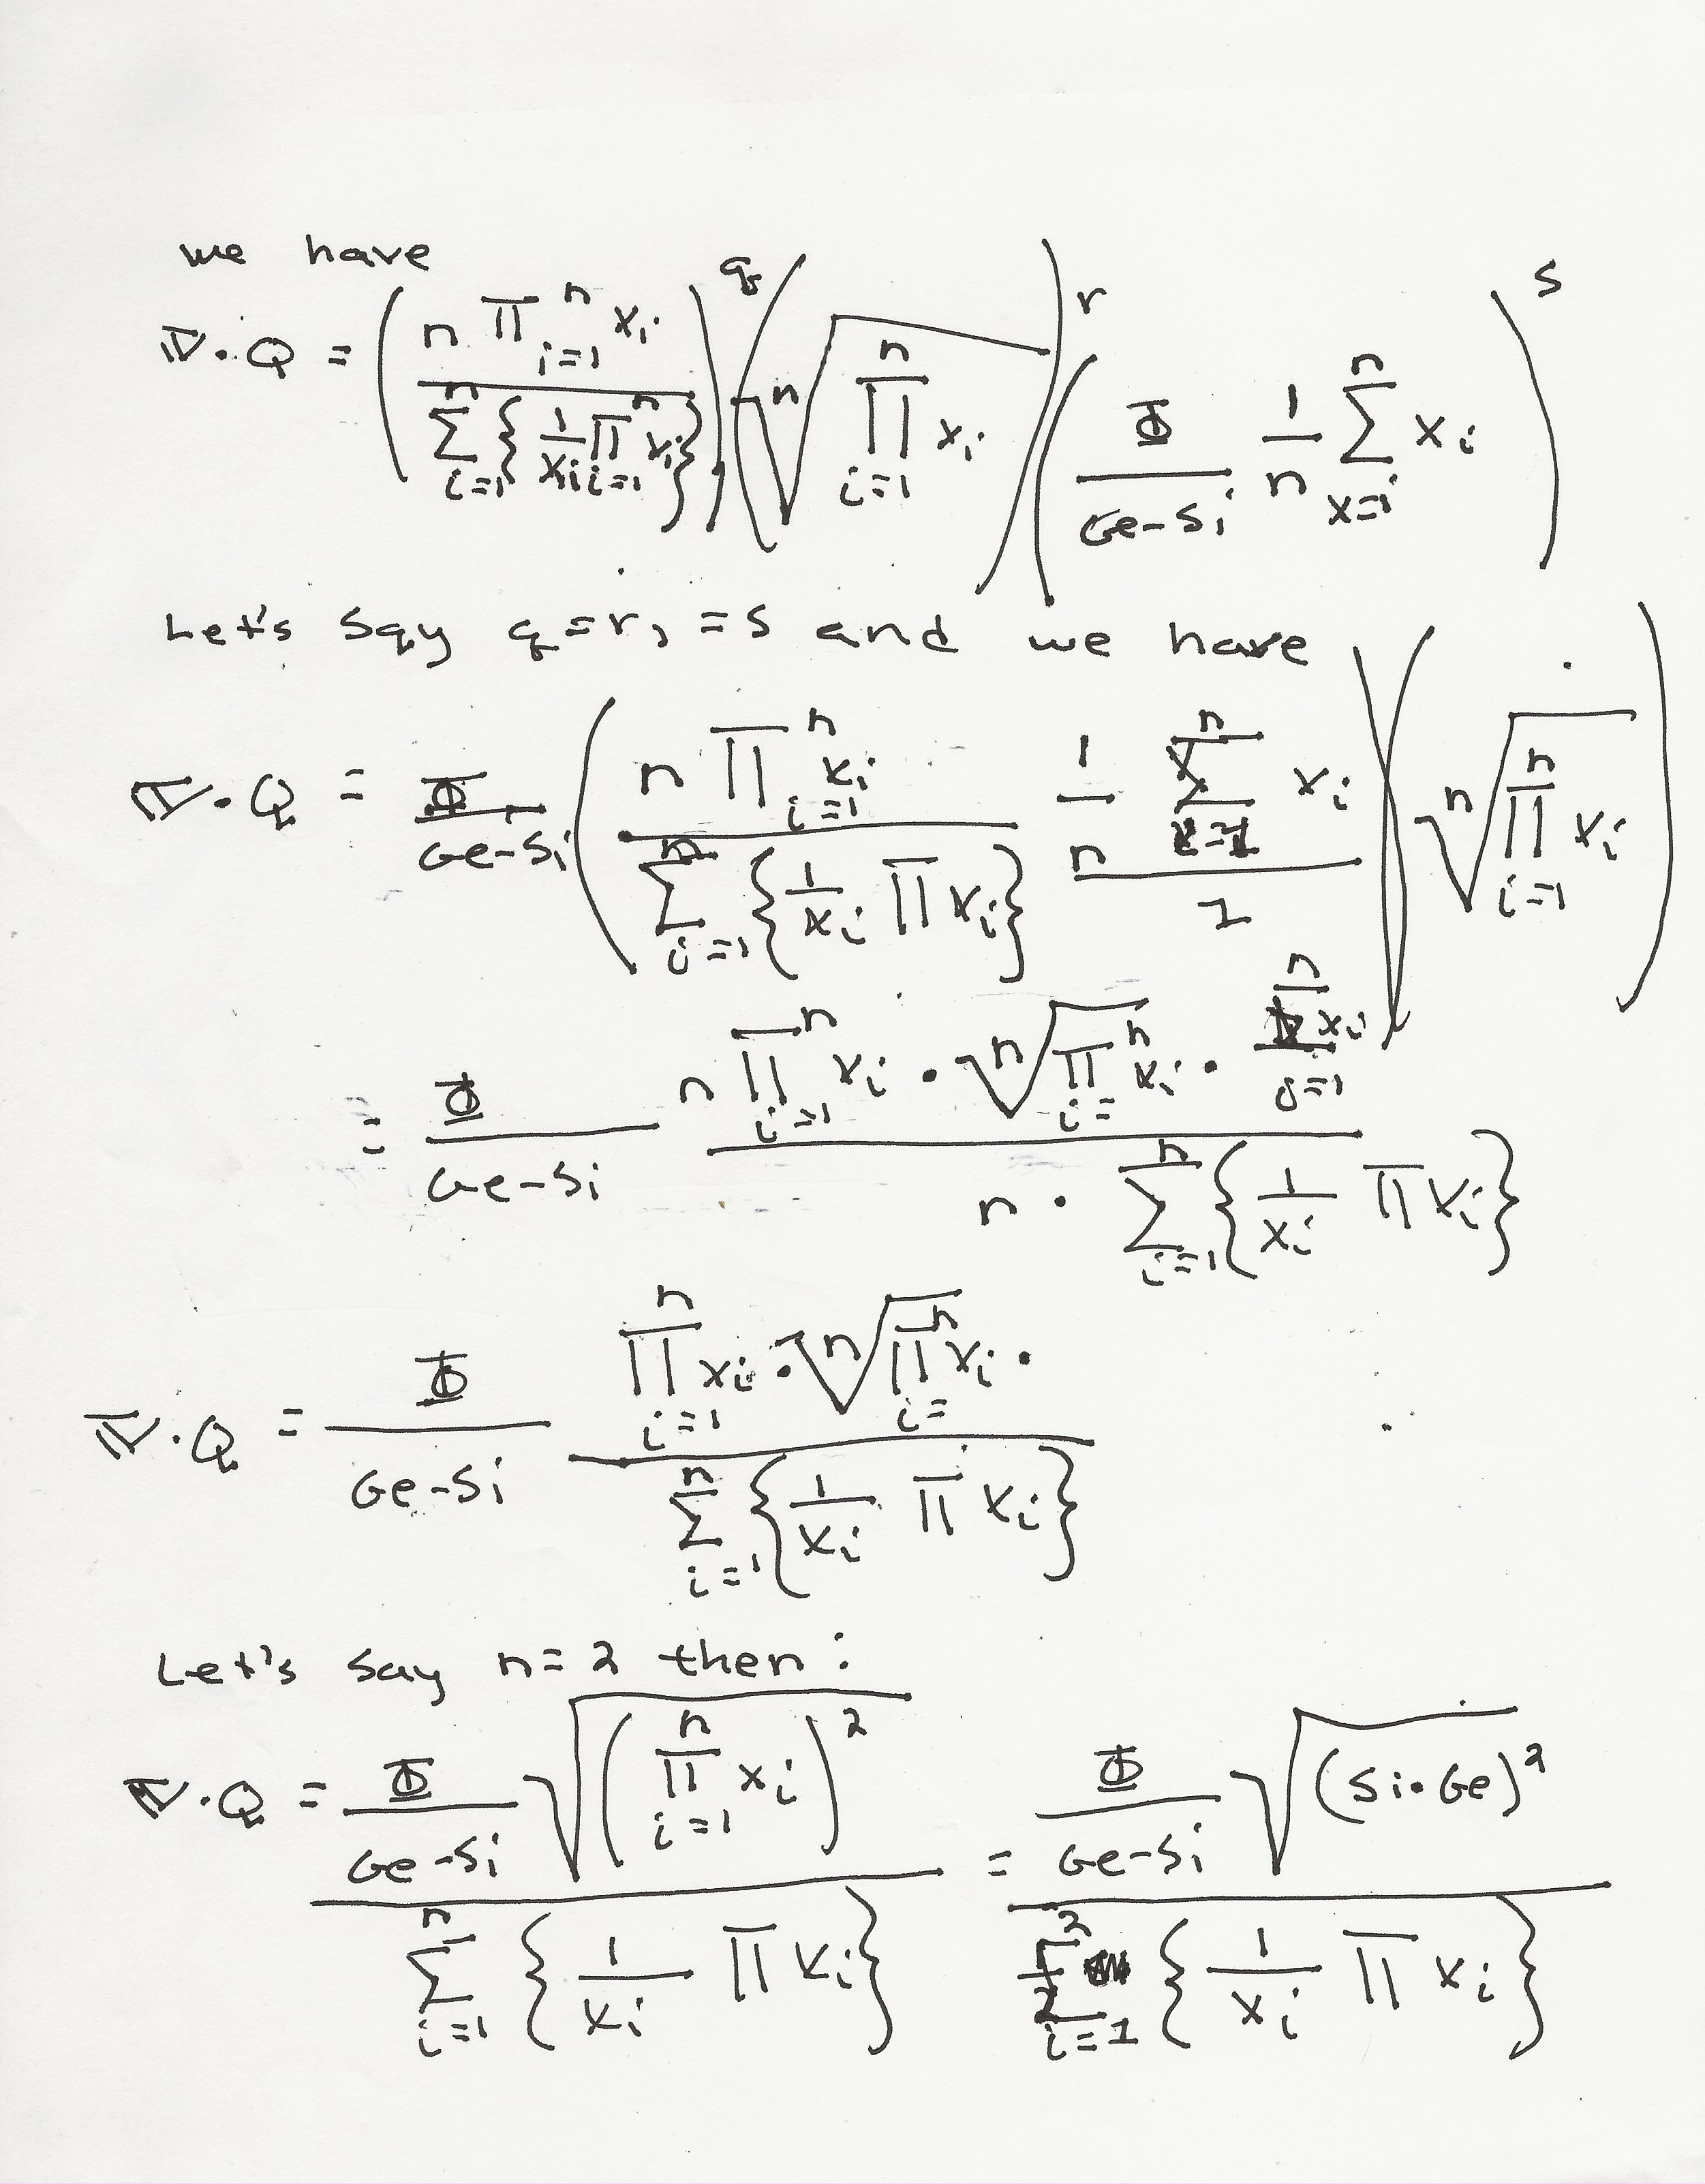 we have
π·Q = ( n ∏_{i=1}^{n} x_i / ∑_{i=1}^{n} { 1/x_i ∏_{i=1}^{n} x_i } )^q ( ⁿ√ ∏_{i=1}^{n} x_i )^r ( Φ/(Ge-Si) 1/n ∑_{x=i}^{n} x_i )^s
Let's say q=r, =s and we have
π·Q = Φ/(Ge-Si) ( n ∏_{i=1}^{n} x_i / ∑_{i=1}^{n} { 1/x_i ∏ x_i } · 1/n ∑^{n} x_i / 1 ) ( ⁿ√ ∏_{i=1}^{n} x_i )
= Φ/(Ge-Si) n ∏_{i=1}^{n} x_i · ⁿ√ ∏_{i=}^{n} x_i · ^{n} x_i _{i=1} / n · ∑_{i=1}^{n} { 1/x_i ∏ x_i }
π·Q = Φ/(Ge-Si) ∏_{i=1}^{n} x_i · ⁿ√ ∏_{i=}^{n} x_i · / ∑_{i=1}^{n} { 1/x_i ∏ x_i }
Let's say n=2 then:
π·Q = Φ/(Ge-Si) √( ∏_{i=1}^{n} x_i )² / ∑_{i=1}^{n} { 1/x_i ∏ x_i } = Φ/(Ge-Si) √(Si·Ge)² / ∑_{i=1}^{2} { 1/x_i ∏ x_i }